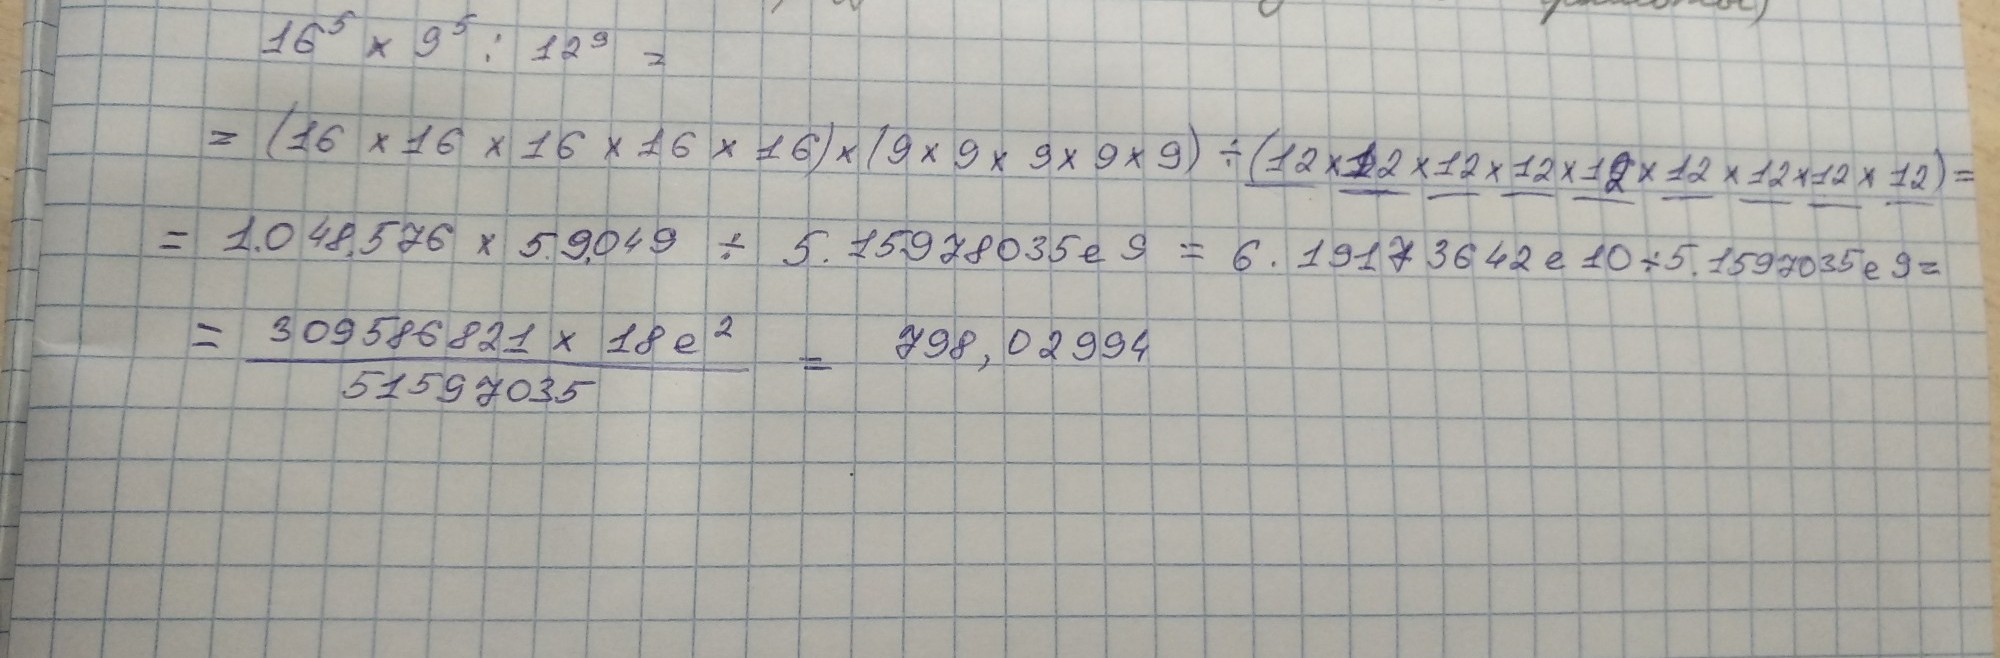 16⁵ × 9⁵ : 12⁹ =
= (16 × 16 × 16 × 16 × 16) × (9 × 9 × 9 × 9 × 9) ÷ (12 × 12 × 12 × 12 × 12 × 12 × 12 × 12 × 12) =
= 1.048.576 × 59.049 ÷ 5.15978035e9 = 6.19173642e10 ÷ 5.1597035e9 =
= 309586821 × 18e² / 51597035 = 798,02994